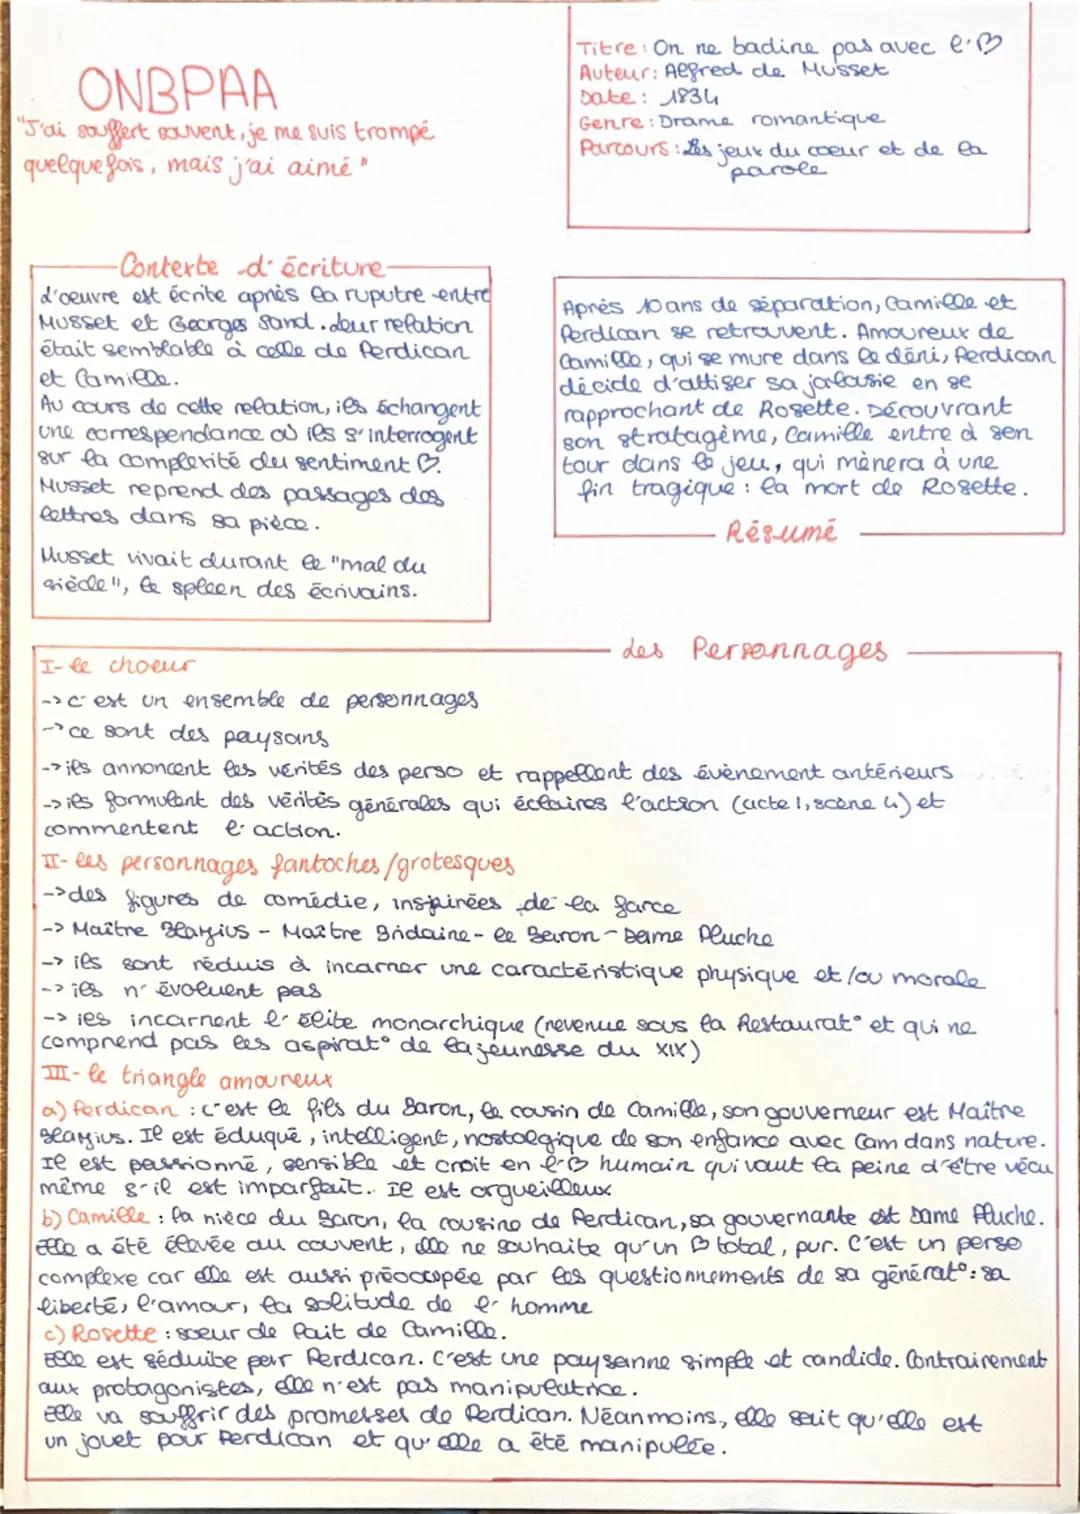 ONBPAA
"J'ai souffert souvent, je me suis trompé
quelquefois, mais j'ai aimé"
Titre : On ne badine pas avec l'♡
Auteur : Alfred de Musset
Date : 1834
Genre : Drame romantique
Parcours : Les jeux du coeur et de la
parole
Contexte d'écriture
L'oeuvre est écrite après la ruputre entre
Musset et Georges Sand. Leur relation
était semblable à celle de Perdican
et Camille.
Au cours de cette relation, ils échangent
une correspondance où ils s'interrogent
sur la complexité du sentiment ♡.
Musset reprend des passages des
lettres dans sa pièce.
Musset vivait durant le "mal du
siècle", le spleen des écrivains.
Après 10 ans de séparation, Camille et
Perdican se retrouvent. Amoureux de
Camille, qui se mure dans le déni, Perdican
décide d'attiser sa jalousie en se
rapprochant de Rosette. Découvrant
son stratagème, Camille entre à son
tour dans le jeu, qui mènera à une
fin tragique : la mort de Rosette.
Résumé
Les Personnages
I- le choeur
-> c'est un ensemble de personnages
-> ce sont des paysans
-> ils annoncent les vérités des perso et rappellent des évènement antérieurs
-> ils formulent des vérités générales qui éclaires l'action (acte 1, scène 4) et
commentent l'action.
II- les personnages fantoches/grotesques
-> des figures de comédie, inspirées de la farce
-> Maître Blazius - Maître Bridaine - le Baron - Dame Pluche
-> ils sont réduis à incarner une caractéristique physique et/ou morale
-> ils n'évoluent pas
-> ils incarnent l'élite monarchique (revenue sous la Restaurat° et qui ne
comprend pas les aspirat° de la jeunesse du XIX)
III- le triangle amoureux
a) Perdican : c'est le fils du Baron, le cousin de Camille, son gouverneur est Maître
Blazius. Il est éduqué, intelligent, nostalgique de son enfance avec Cam dans nature.
Il est passionné, sensible et croit en l'♡ humain qui vaut la peine d'être vécu
même s'il est imparfait. Il est orgueilleux
b) Camille : la nièce du Baron, la cousine de Perdican, sa gouvernante est Dame Pluche.
Elle a été élevée au couvent, elle ne souhaite qu'un ♡ total, pur. C'est un perso
complexe car elle est aussi préoccupée par les questionnements de sa générat° : sa
liberté, l'amour, la solitude de l'homme
c) Rosette : soeur de lait de Camille.
Elle est séduite par Perdican. C'est une paysanne simple et candide. Contrairement
aux protagonistes, elle n'est pas manipulatrice.
Elle va souffrir des promesses de Perdican. Néanmoins, elle sait qu'elle est
un jouet pour Perdican et qu'elle a été manipulée.